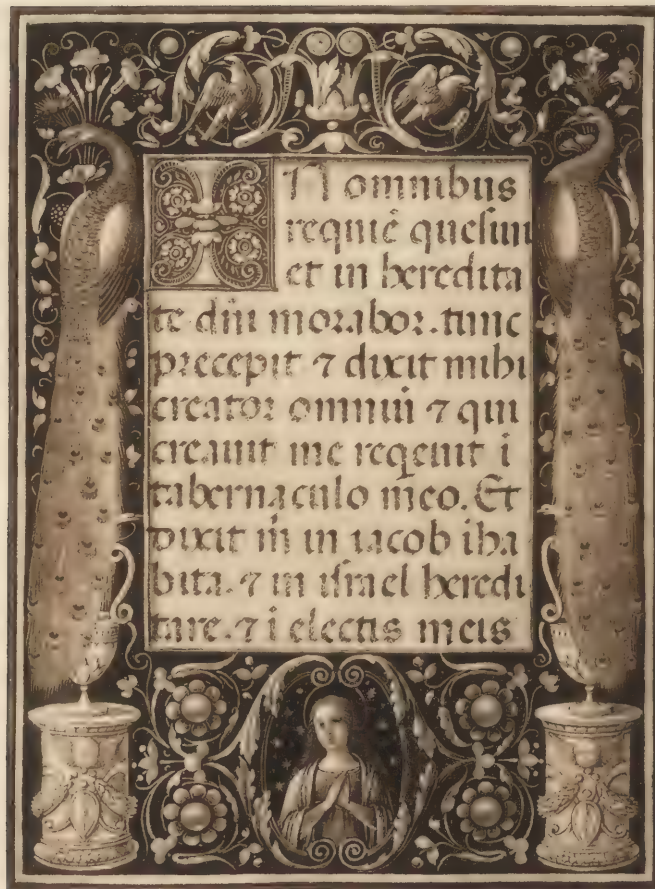 IN omnibus
requiē quesiui
et in heredita
te dñi morabor. tunc
precepit ⁊ dixit mihi
creator omniū ⁊ qui
creauit me reqeuit i
tabernaculo meo. Et
dixit m̄ in iacob iha
bita. ⁊ in israel heredi
tare. ⁊ i electis meis